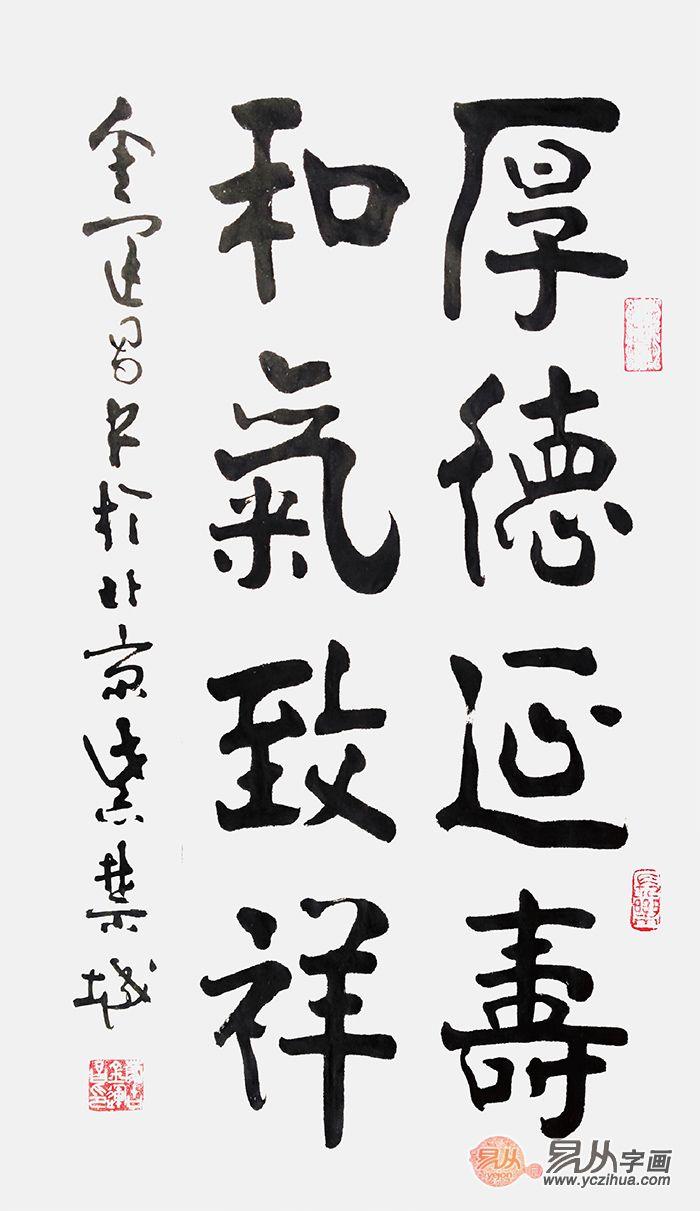 厚德延壽
和氣致祥
金運昌书於北京紫禁城
易从
易从字画
www.yczihua.com